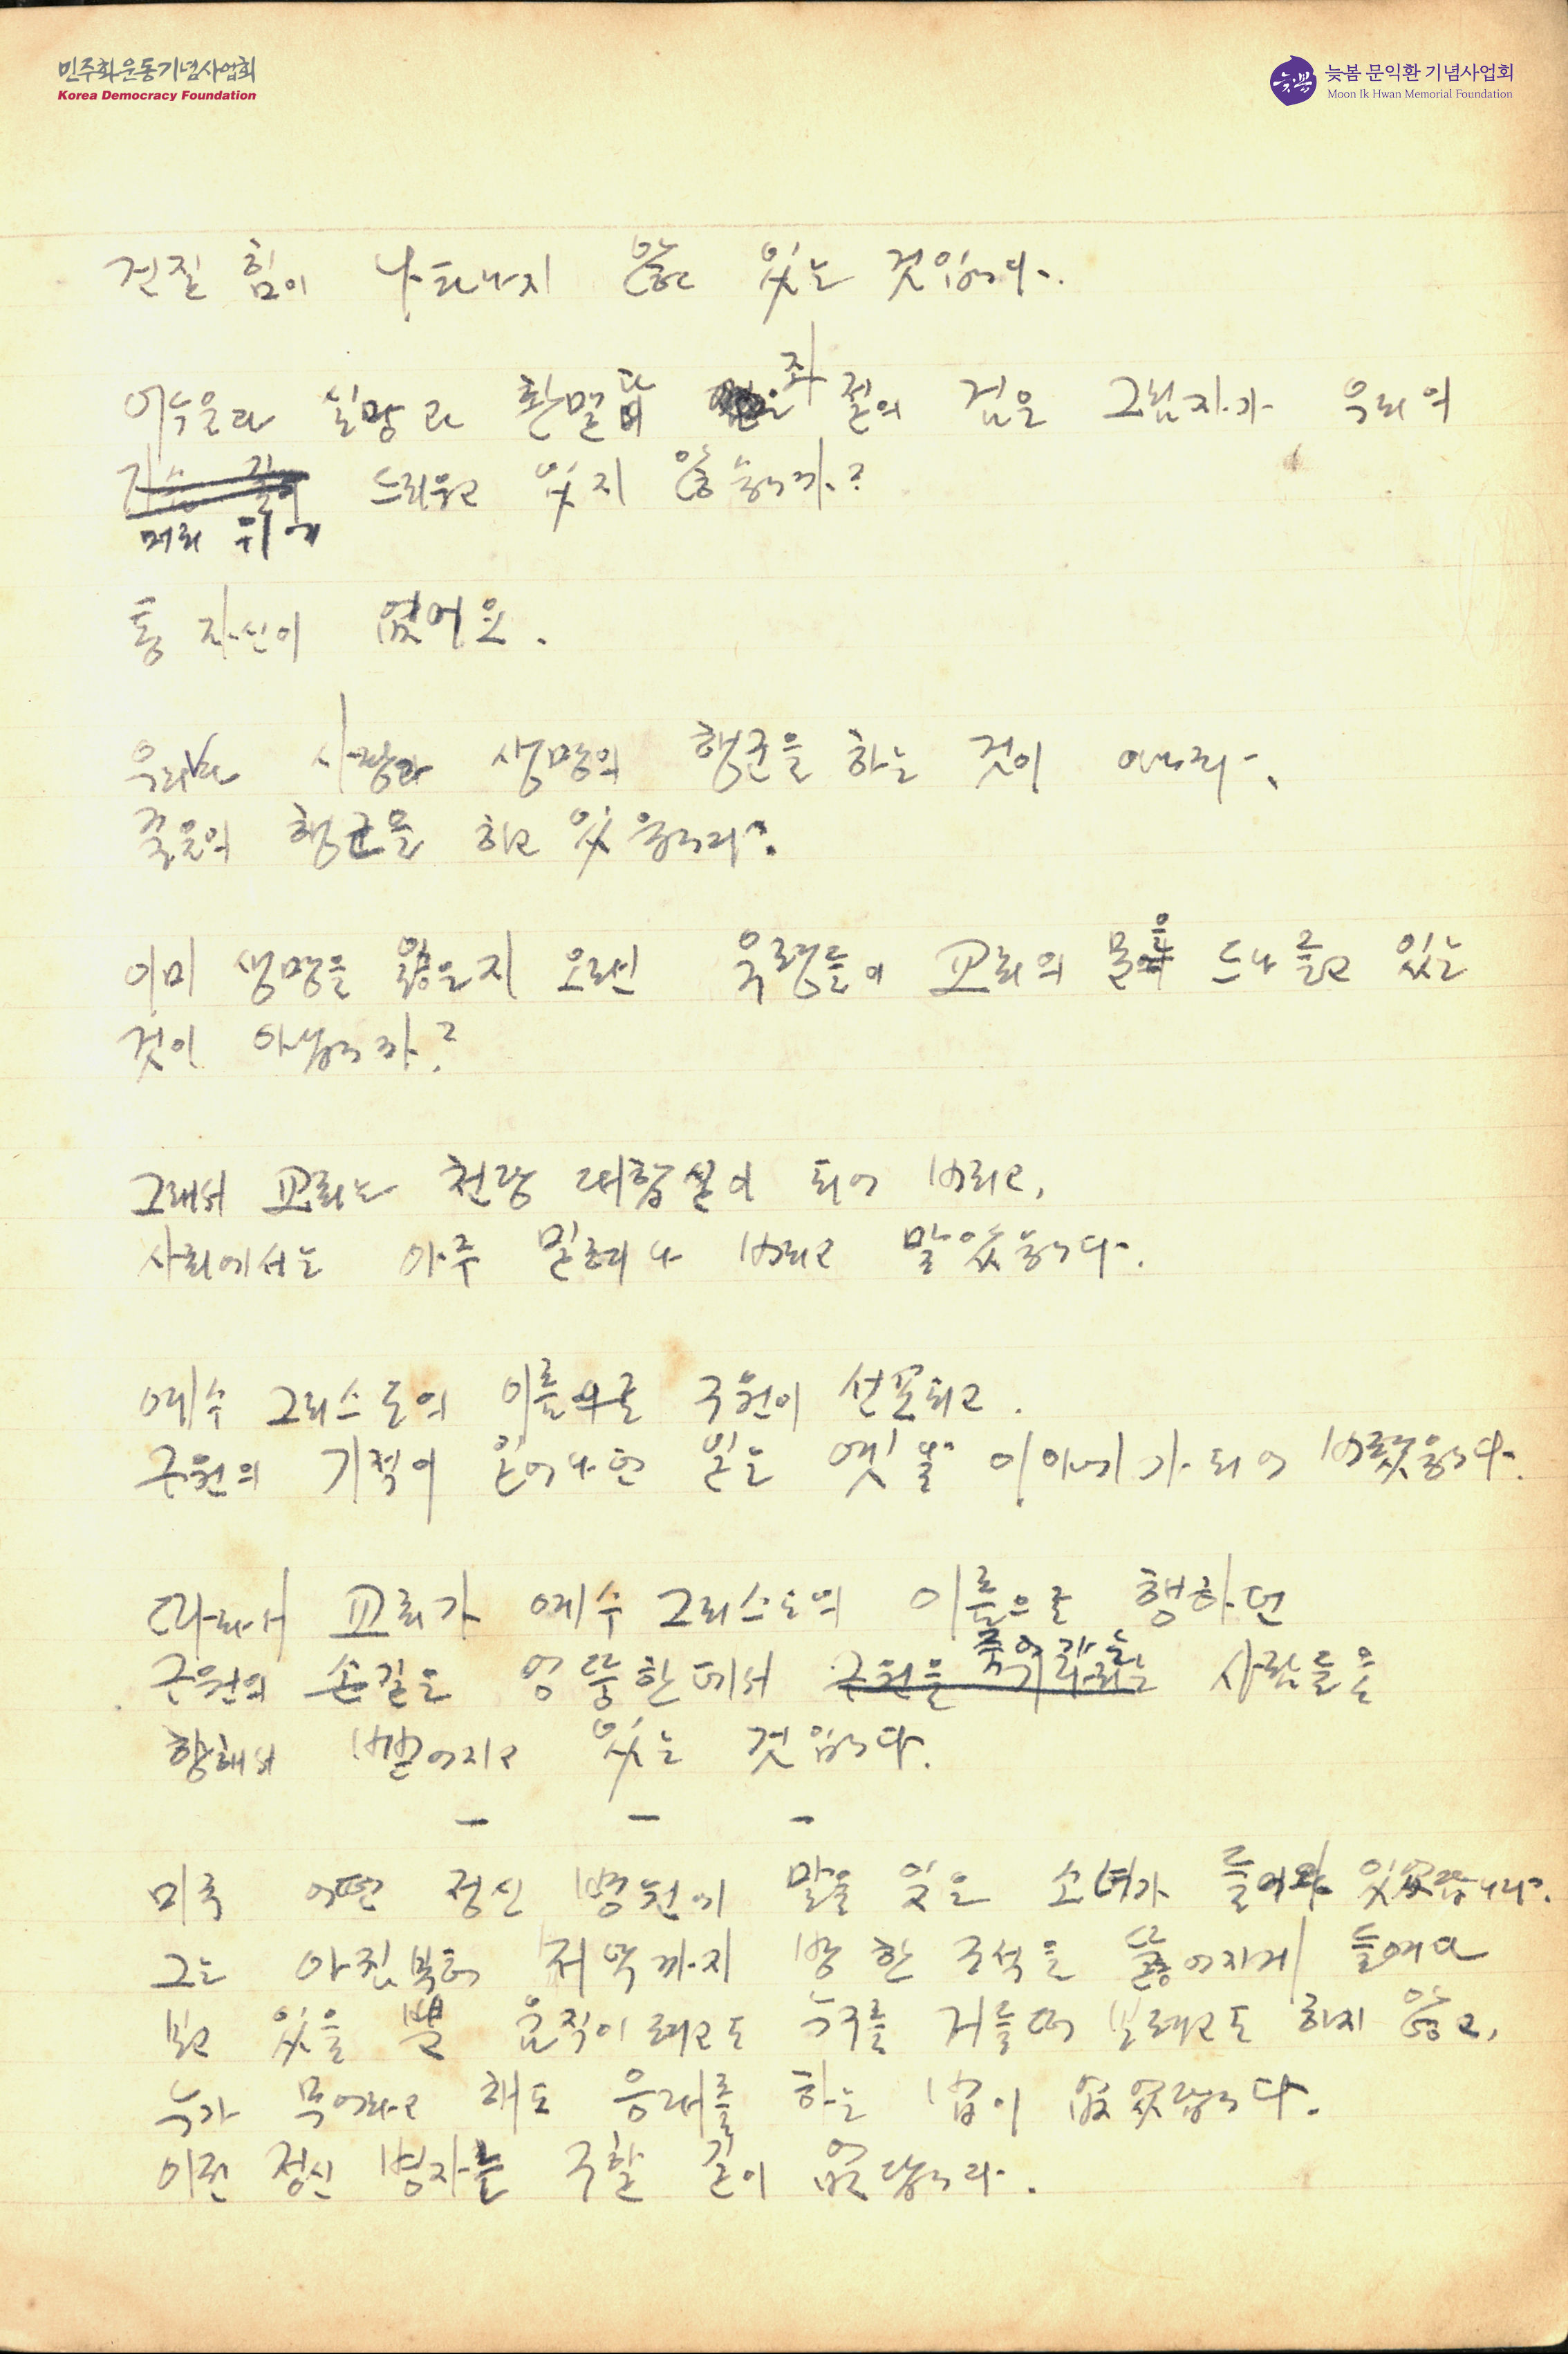 민주화운동기념사업회
Korea Democracy Foundation
늦봄
늦봄 문익환 기념사업회
Moon Ik Hwan Memorial Foundation
건질 힘이 나타나지 않고 있는 것입니다.
어두움과 실망과 환멸과 좌절의 검은 그림자가 우리의
머리 위에 드리우고 있지 않습니까?
통 자신이 없어요.
우리는 사랑과 생명의 행군을 하는 것이 아니라,
죽음의 행군을 하고 있읍니다.
이미 생명을 잃은지 오랜 유령들이 교회의 문을 드나들고 있는
것이 아닙니까?
그래서 교회는 천당 대합실이 되어 버리고,
사회에서는 아주 밀려나 버리고 말았읍니다.
예수 그리스도의 이름으로 구원이 선포되고.
구원의 기적이 일어나던 일은 옛날 이야기가 되어 버렸읍니다.
따라서 교회가 예수 그리스도의 이름으로 행하던
구원의 손길은 엉뚱한데서 죽어가는 사람들을
향해서 벌어지고 있는 것입니다.
— — —
미국 어떤 정신 병원에 말을 잊은 소녀가 들어와 있었답니다.
그는 아침부터 저녁까지 방 한 구석을 뚫어지게 들여다
보고 있을 뿐 움직이려고도 누구를 거들떠 보려고도 하지 않고,
누가 무어라고 해도 응대를 하는 법이 없었답니다.
이런 정신 병자는 구할 길이 없답니다.